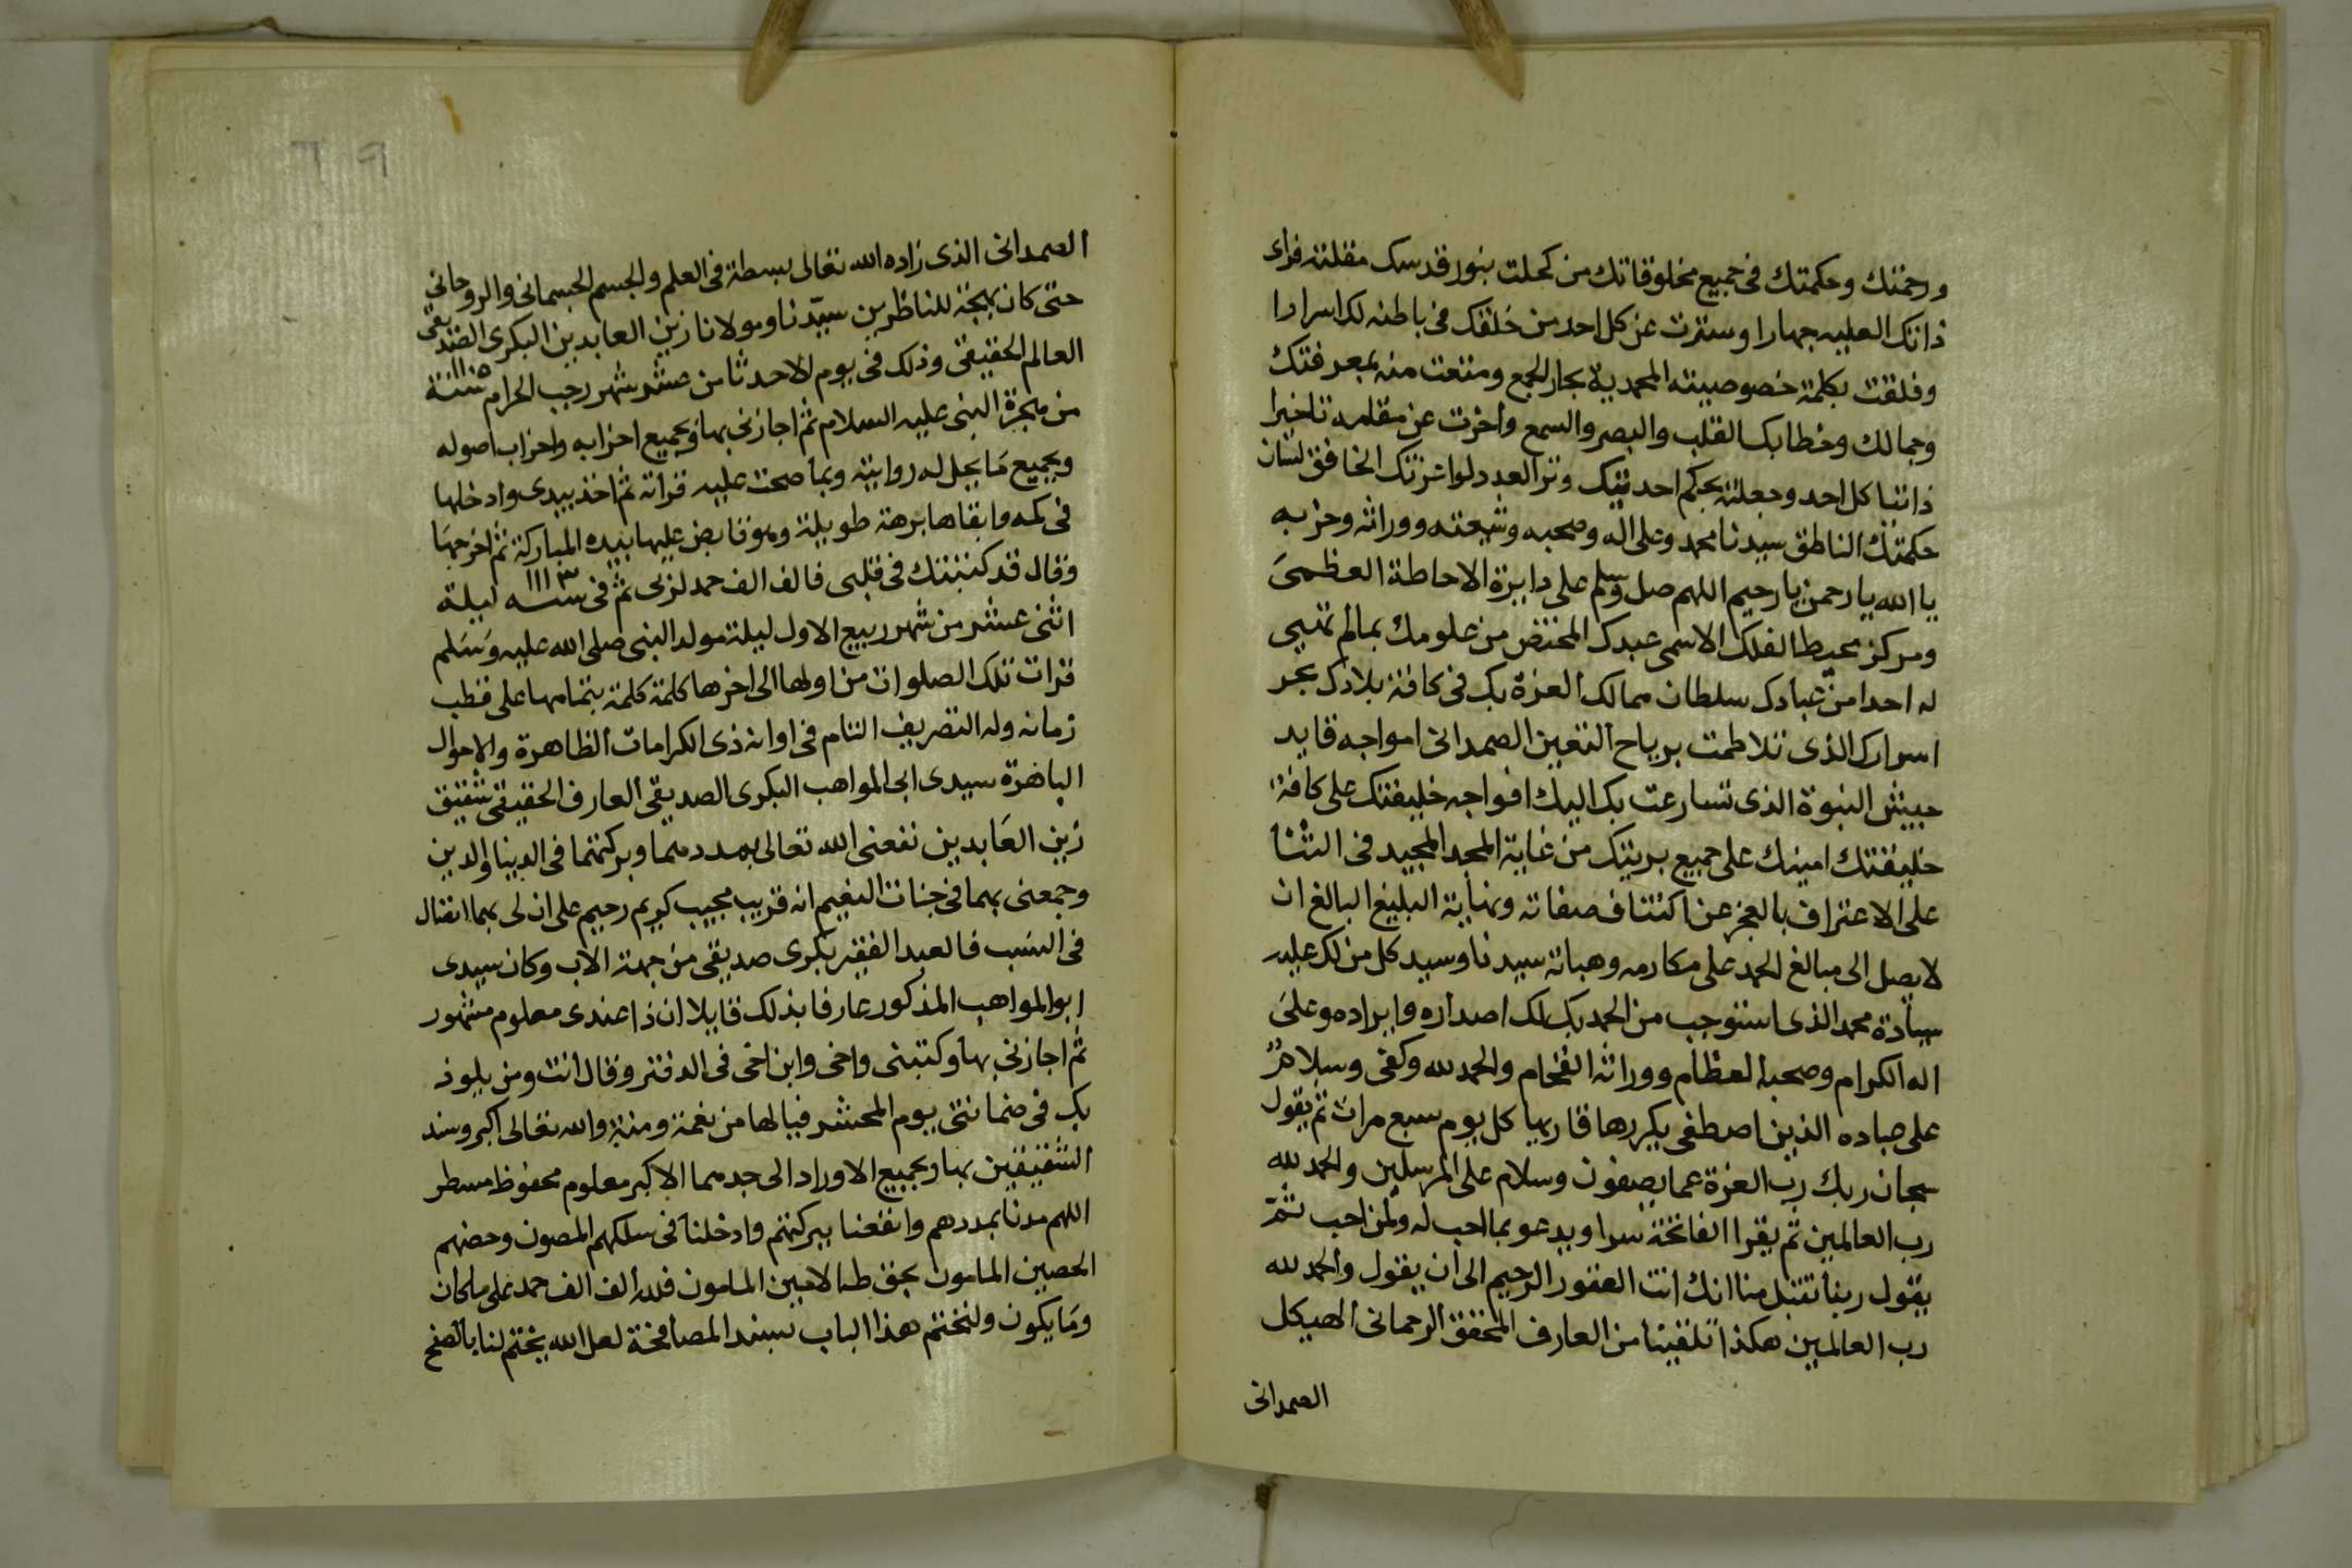 ورحمتك وحكمتك فى جميع مخلوقاتك من كحلت بنور قدسك مقلته فراى
ذاتك العليه جهارا وسترت عن كل احد من خلقك فى باطنه لك اسرارا
وفلقت بكلمة خصوصيته المحمدية بحار الجمع ومتعت منه بمعرفتك
وجمالك وخطابك القلب والبصر والسمع واخرت عن مقامه تاخيرا
ذاتيا كل احد وجعلته بحكم احديتك وتر العدد لواعزتك الخافق لسان
حكمتك الناطق سيدنا محمد وعلى اله وصحبه وشيعته ووراثه وحزبه
يا الله يا رحمن يا رحيم اللهم صل وسلم على دايرة الاحاطة العظمى
ومركز محيط الفلك الاسمى عبدك المختص من علومك بمالم تهيى
له احدا من عبادك سلطان ممالك العزة بك فى كافة بلادك بحر
اسرارك الذى تلاطمت برياح التعين الصمدانى امواجه قايد
جيش النبوة الذى تسارعت بك اليك افواجه خليفتك على كافة
خليقتك امينك على جميع بريتك من غاية المجد المجيد فى الثنا
على الاعتراف بالعجز عن اكتناف صفاته ونهاية البليغ البالغ ان
لا يصل الى مبالغ الحمد على مكارمه وهباته سيدنا وسيد كل من لك عليه
سيادة محمد الذى استوجب من الحمد بك لك اصداره وايراده وعلى
اله الكرام وصحبه العظام ووراثه الفخام والحمد لله وكفى وسلام
على عباده الذين اصطفى يكررها قاريها كل يوم سبع مرات ثم يقول
سبحان ربك رب العزة عما يصفون وسلام على المرسلين والحمد لله
رب العالمين ثم يقرا الفاتحة سرا ويدعو بما احب له ولمن احب ثم
يقول ربنا تقبل منا انك انت الغفور الرحيم الى ان يقول والحمد لله
رب العالمين هكذا تلقينا من العارف المحقق الرحمانى الهيكل
الصمدانى
٦٩
الصمدانى الذى زاده الله تعالى بسطة فى العلم والجسم الجسمانى والروحانى
حتى كان بهجة للناظرين سيّدنا ومولانا زين العابدين البكرى الصديقى
العالم الحقيقى وذلك فى يوم الاحد ثامن عشر شهر رجب الحرام سنة
من هجرة النبى عليه السلام ثم اجازنى بها وبجميع احزابه واحزاب اصوله
وبجميع ما يجل له روايته وبما صحت عليه قراته ثم اخذ بيدى وادخلها
فى كمه وابقاها برهة طويلة وهو قابض عليها بيده المباركة ثم اخرجها
وقال قد كتبتك فى قلبى فالف الف حمد لربى ثم فى سنه ١١١٣ ليلة
اثنى عشر من شهر ربيع الاول ليلة مولد النبى صلى الله عليه وسلم
قرات تلك الصلوات من اولها الى اخرها كلمة كلمة بتمامها على قطب
زمانه وله التصريف التام فى اوانه ذى الكرامات الظاهرة والاحوال
الباهرة سيدى ابى المواهب البكرى الصديقى العارف الحقيقى شقيق
زين العابدين نفعنى الله تعالى بمددهما وبركتهما فى الدينا والدين
وجمعنى بهما فى جنات النعيم انه قريب مجيب كريم رحيم على ان لى بهما اتصال
فى النسب فالعبد الفقير بكرى صديقى من جهة الاب وكان سيدى
ابو المواهب المذكور عارفا بذلك قايلا ان ذا عندى معلوم مشهور
ثم اجازنى بها وكتبنى واخى وابن اخى فى الدفتر وقال انت ومن يلوذ
بك فى ضمانتى يوم المحشر فيالها من نعمة ومنة والله تعالى اكبر وسند
الشقيقين بها وبجميع الاوراد الى جدهما الاكبر معلوم محفوظ مسطر
اللهم مدنا بمددهم وانفعنا ببركتهم وادخلنا فى سلكهم المصون وحصنهم
الحصين المامون بحق طه الامين المامون فلله الف الف حمد على ما كان
وما يكون ولنختم هذا الباب بسند المصافحة لعل الله يختم لنا بالصفح